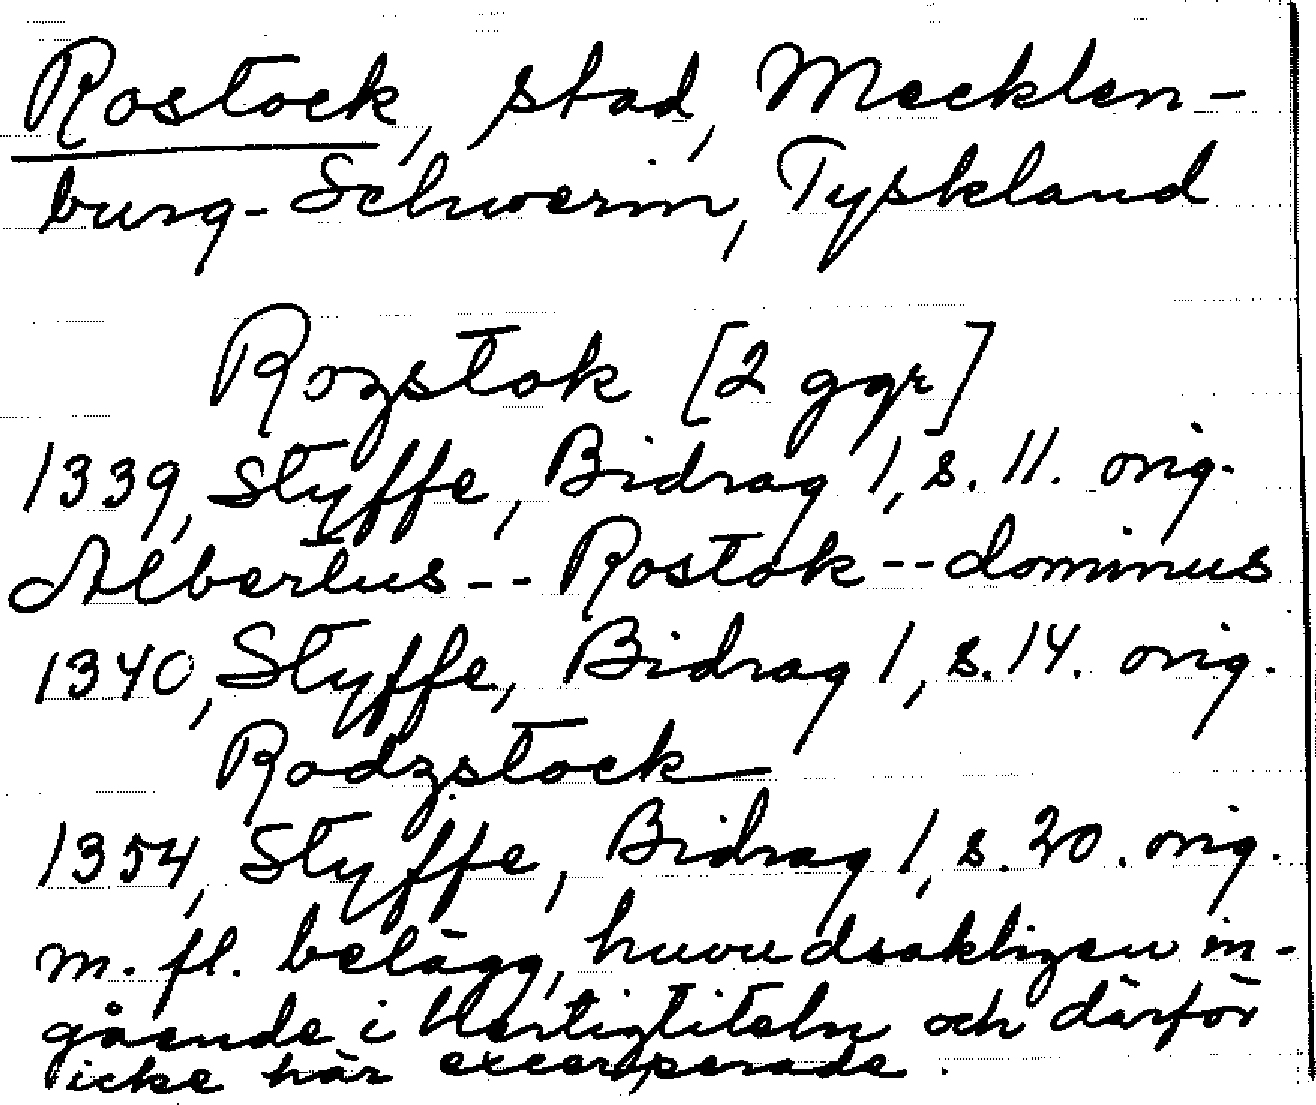 Rostock, stad, Mecklen-
burg-Schwerin, Tyskland
Rozstok [2 ggr]
1339, Styffe, Bidrag 1, s. 11. orig.
Albertus -- Rostok -- dominus
1340, Styffe, Bidrag 1, s. 14. orig.
Rodzstock
1354, Styffe, Bidrag 1, s. 20. orig.
m. fl. belägg, huvudsakligen in-
gående i hertigtiteln och därför
icke här excerperade.